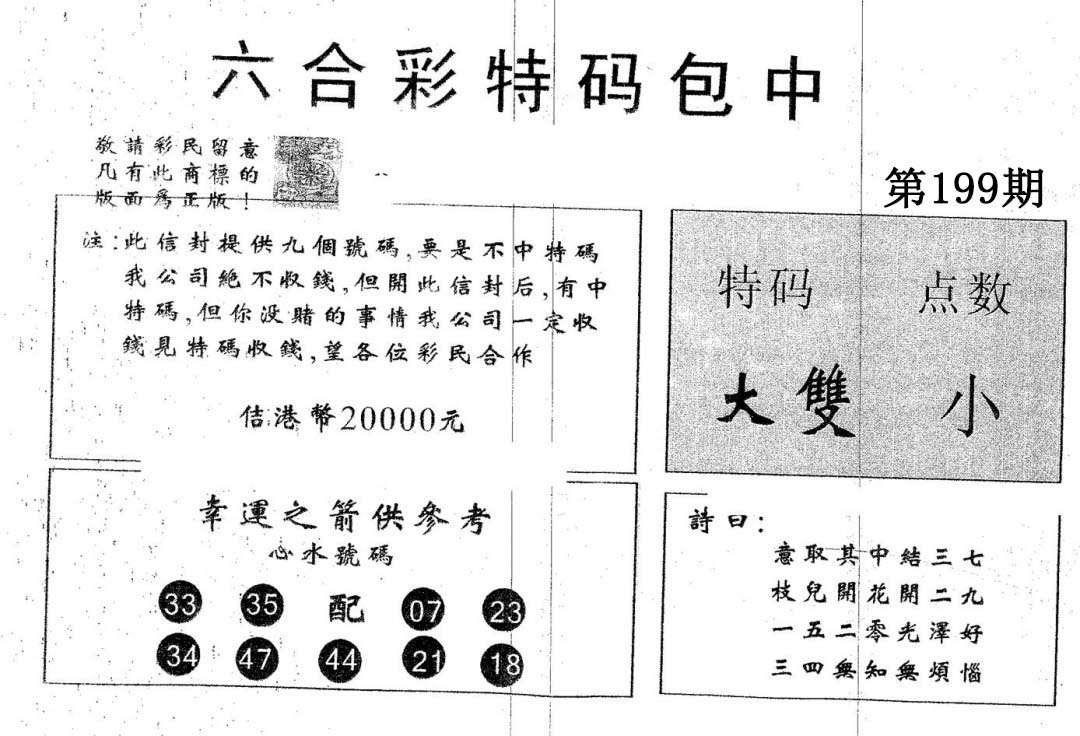 六合彩特码包中
敬請彩民留意
凡有此商標的
版面爲正版！
第199期
注：此信封提供九個號碼,要是不中特碼
我公司絶不收錢,但開此信封后,有中
特碼,但你没賭的事情我公司一定收
錢見特碼收錢,望各位彩民合作
佶港幣20000元
特码 点数
大雙 小
幸運之箭供參考
心水號碼
33 35 配 07 23
34 47 44 21 18
詩曰：
意取其中結三七
枝兒開花開二九
一五二零光澤好
三四無知無煩惱